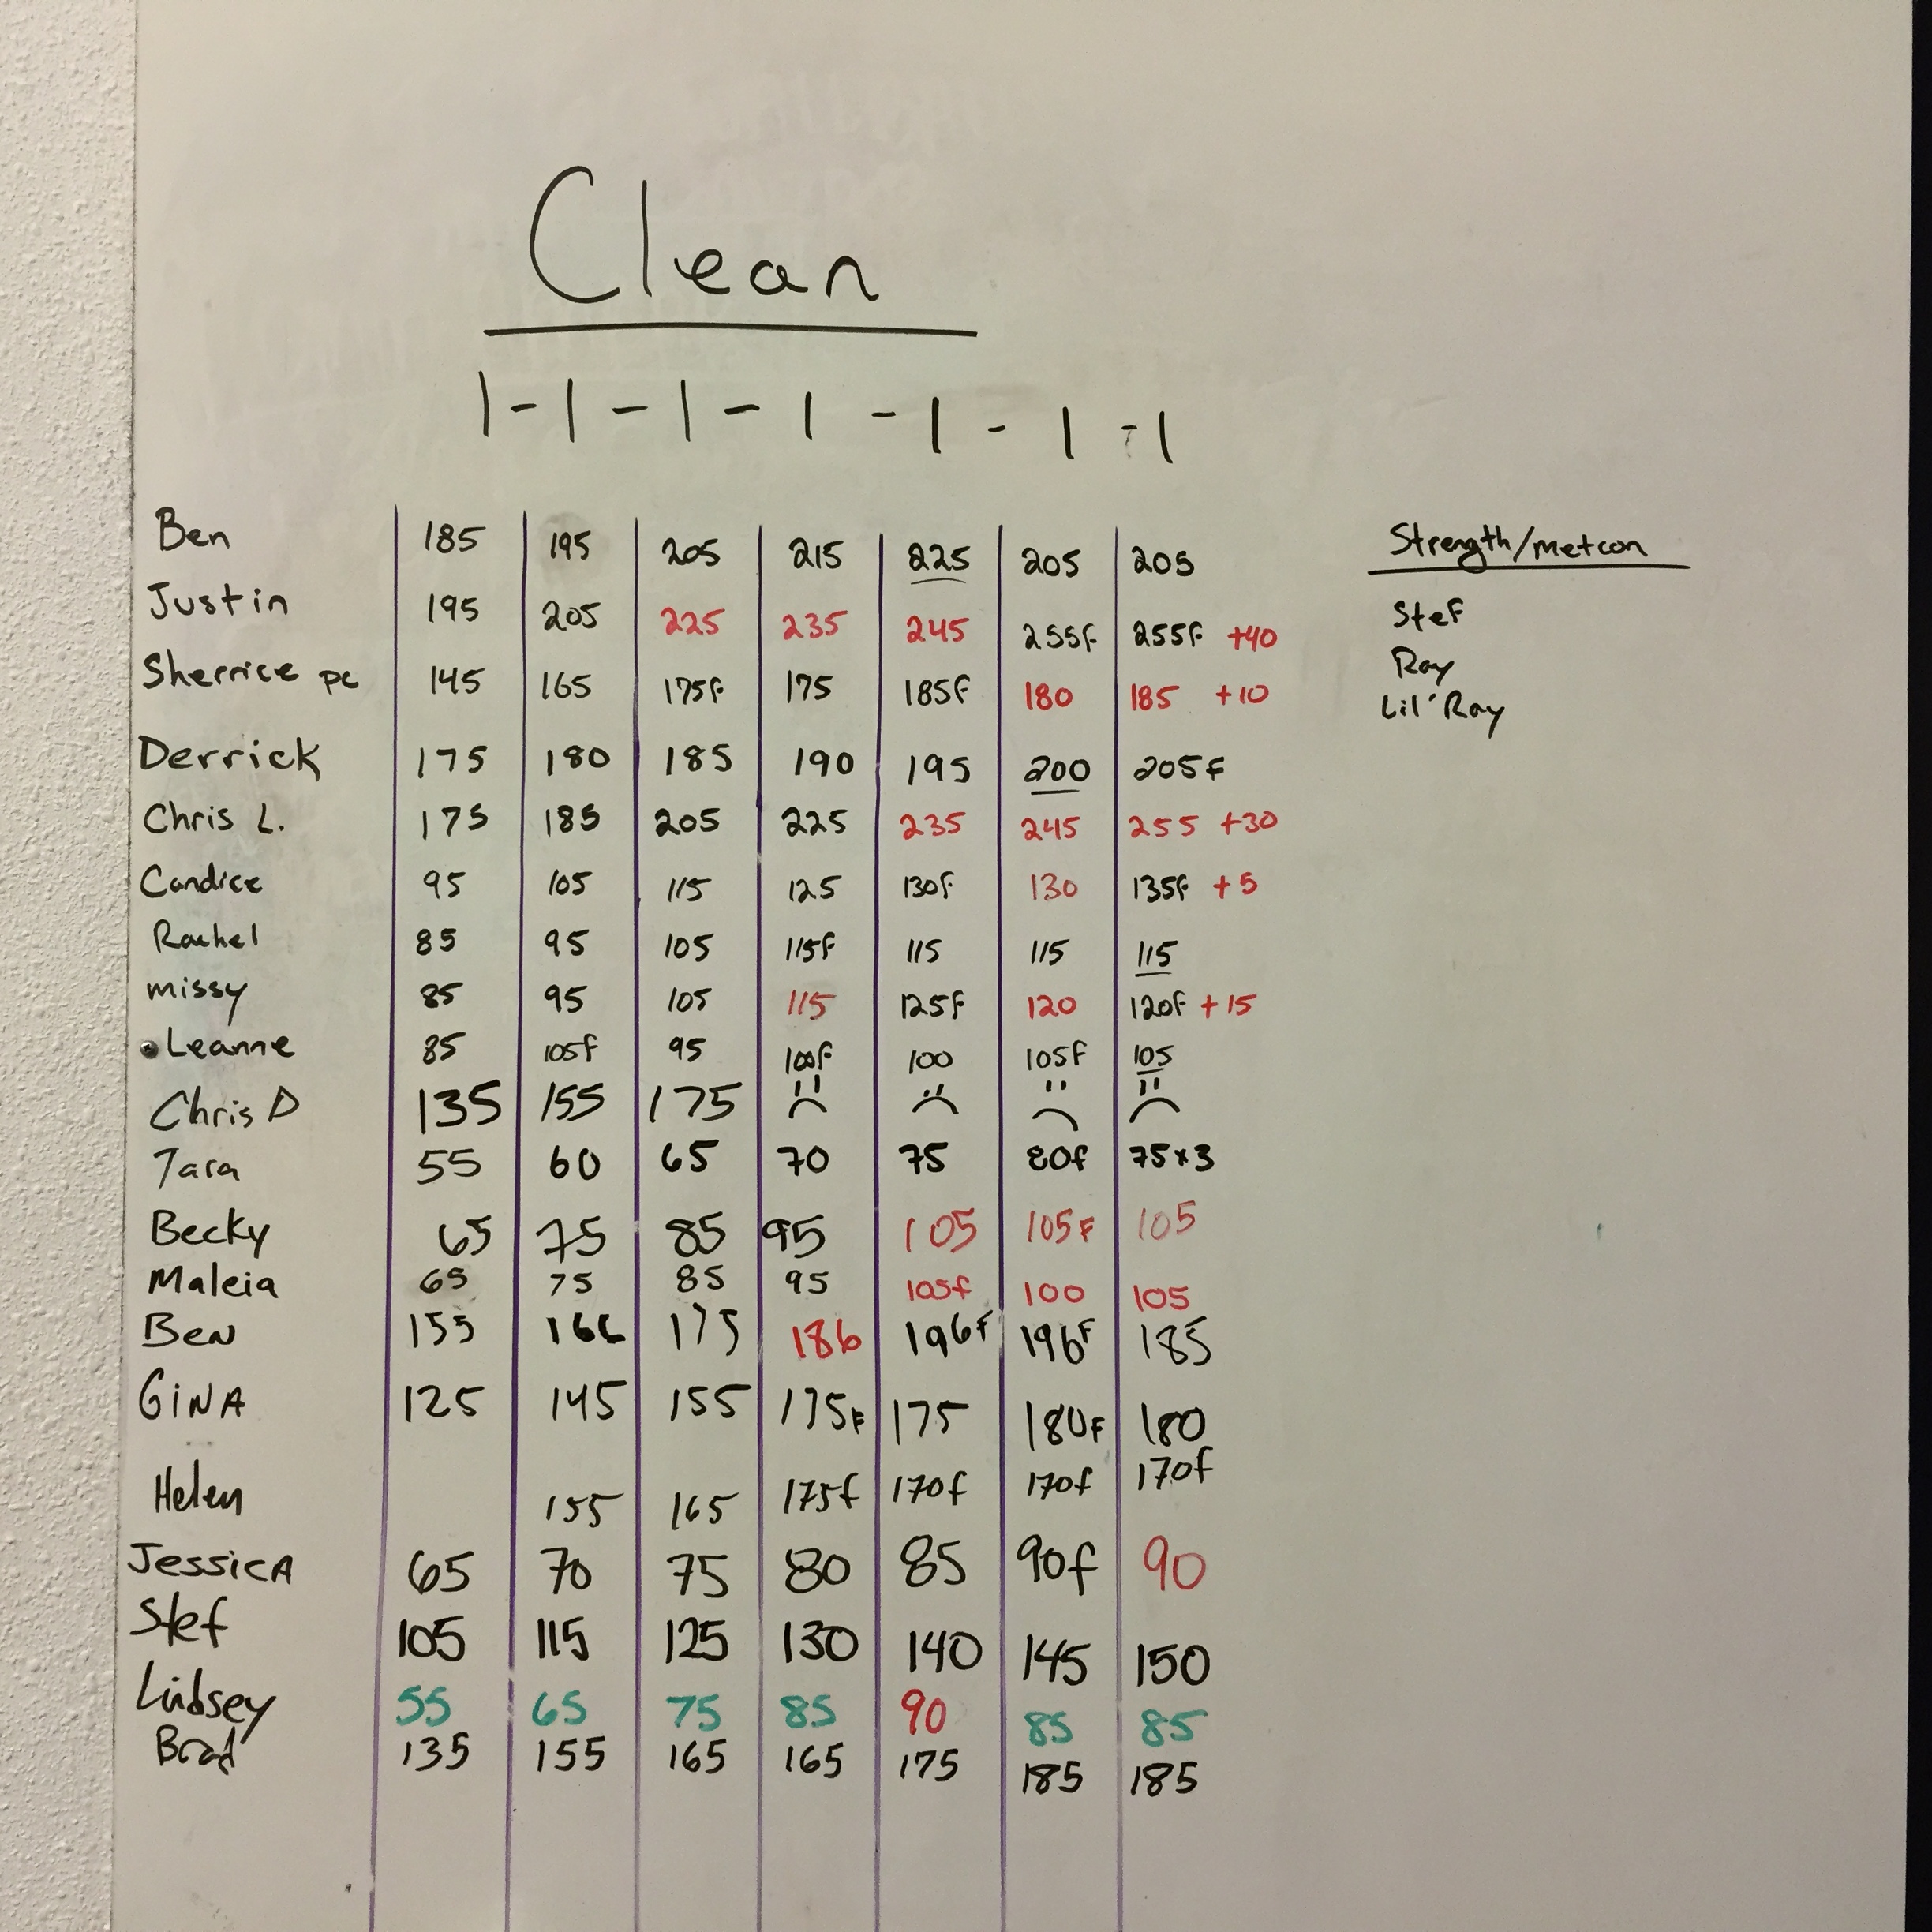 Clean
1 - 1 - 1 - 1 - 1 - 1 - 1
Ben 185 195 205 215 225 205 205
Justin 195 205 225 235 245 255f 255f +40
Sherrice pc 145 165 175f 175 185f 180 185 +10
Derrick 175 180 185 190 195 200 205f
Chris L. 175 185 205 225 235 245 255 +30
Candice 95 105 115 125 130f 130 135f +5
Rachel 85 95 105 115f 115 115 115
missy 85 95 105 115 125f 120 120f +15
Leanne 85 105f 95 100f 100 105f 105
Chris D 135 155 175
Tara 55 60 65 70 75 80f 75x3
Becky 65 75 85 95 105 105f 105
Maleia 65 75 85 95 105f 100 105
Ben 155 166 175 186 196f 196f 185
GINA 125 145 155 175f 175 180f 180
Helen 155 165 175f 170f 170f 170f
JessicA 65 70 75 80 85 90f 90
Stef 105 115 125 130 140 145 150
Lindsey 55 65 75 85 90 85 85
Brad 135 155 165 165 175 185 185
Strength/metcon
Stef
Ray
Lil' Ray